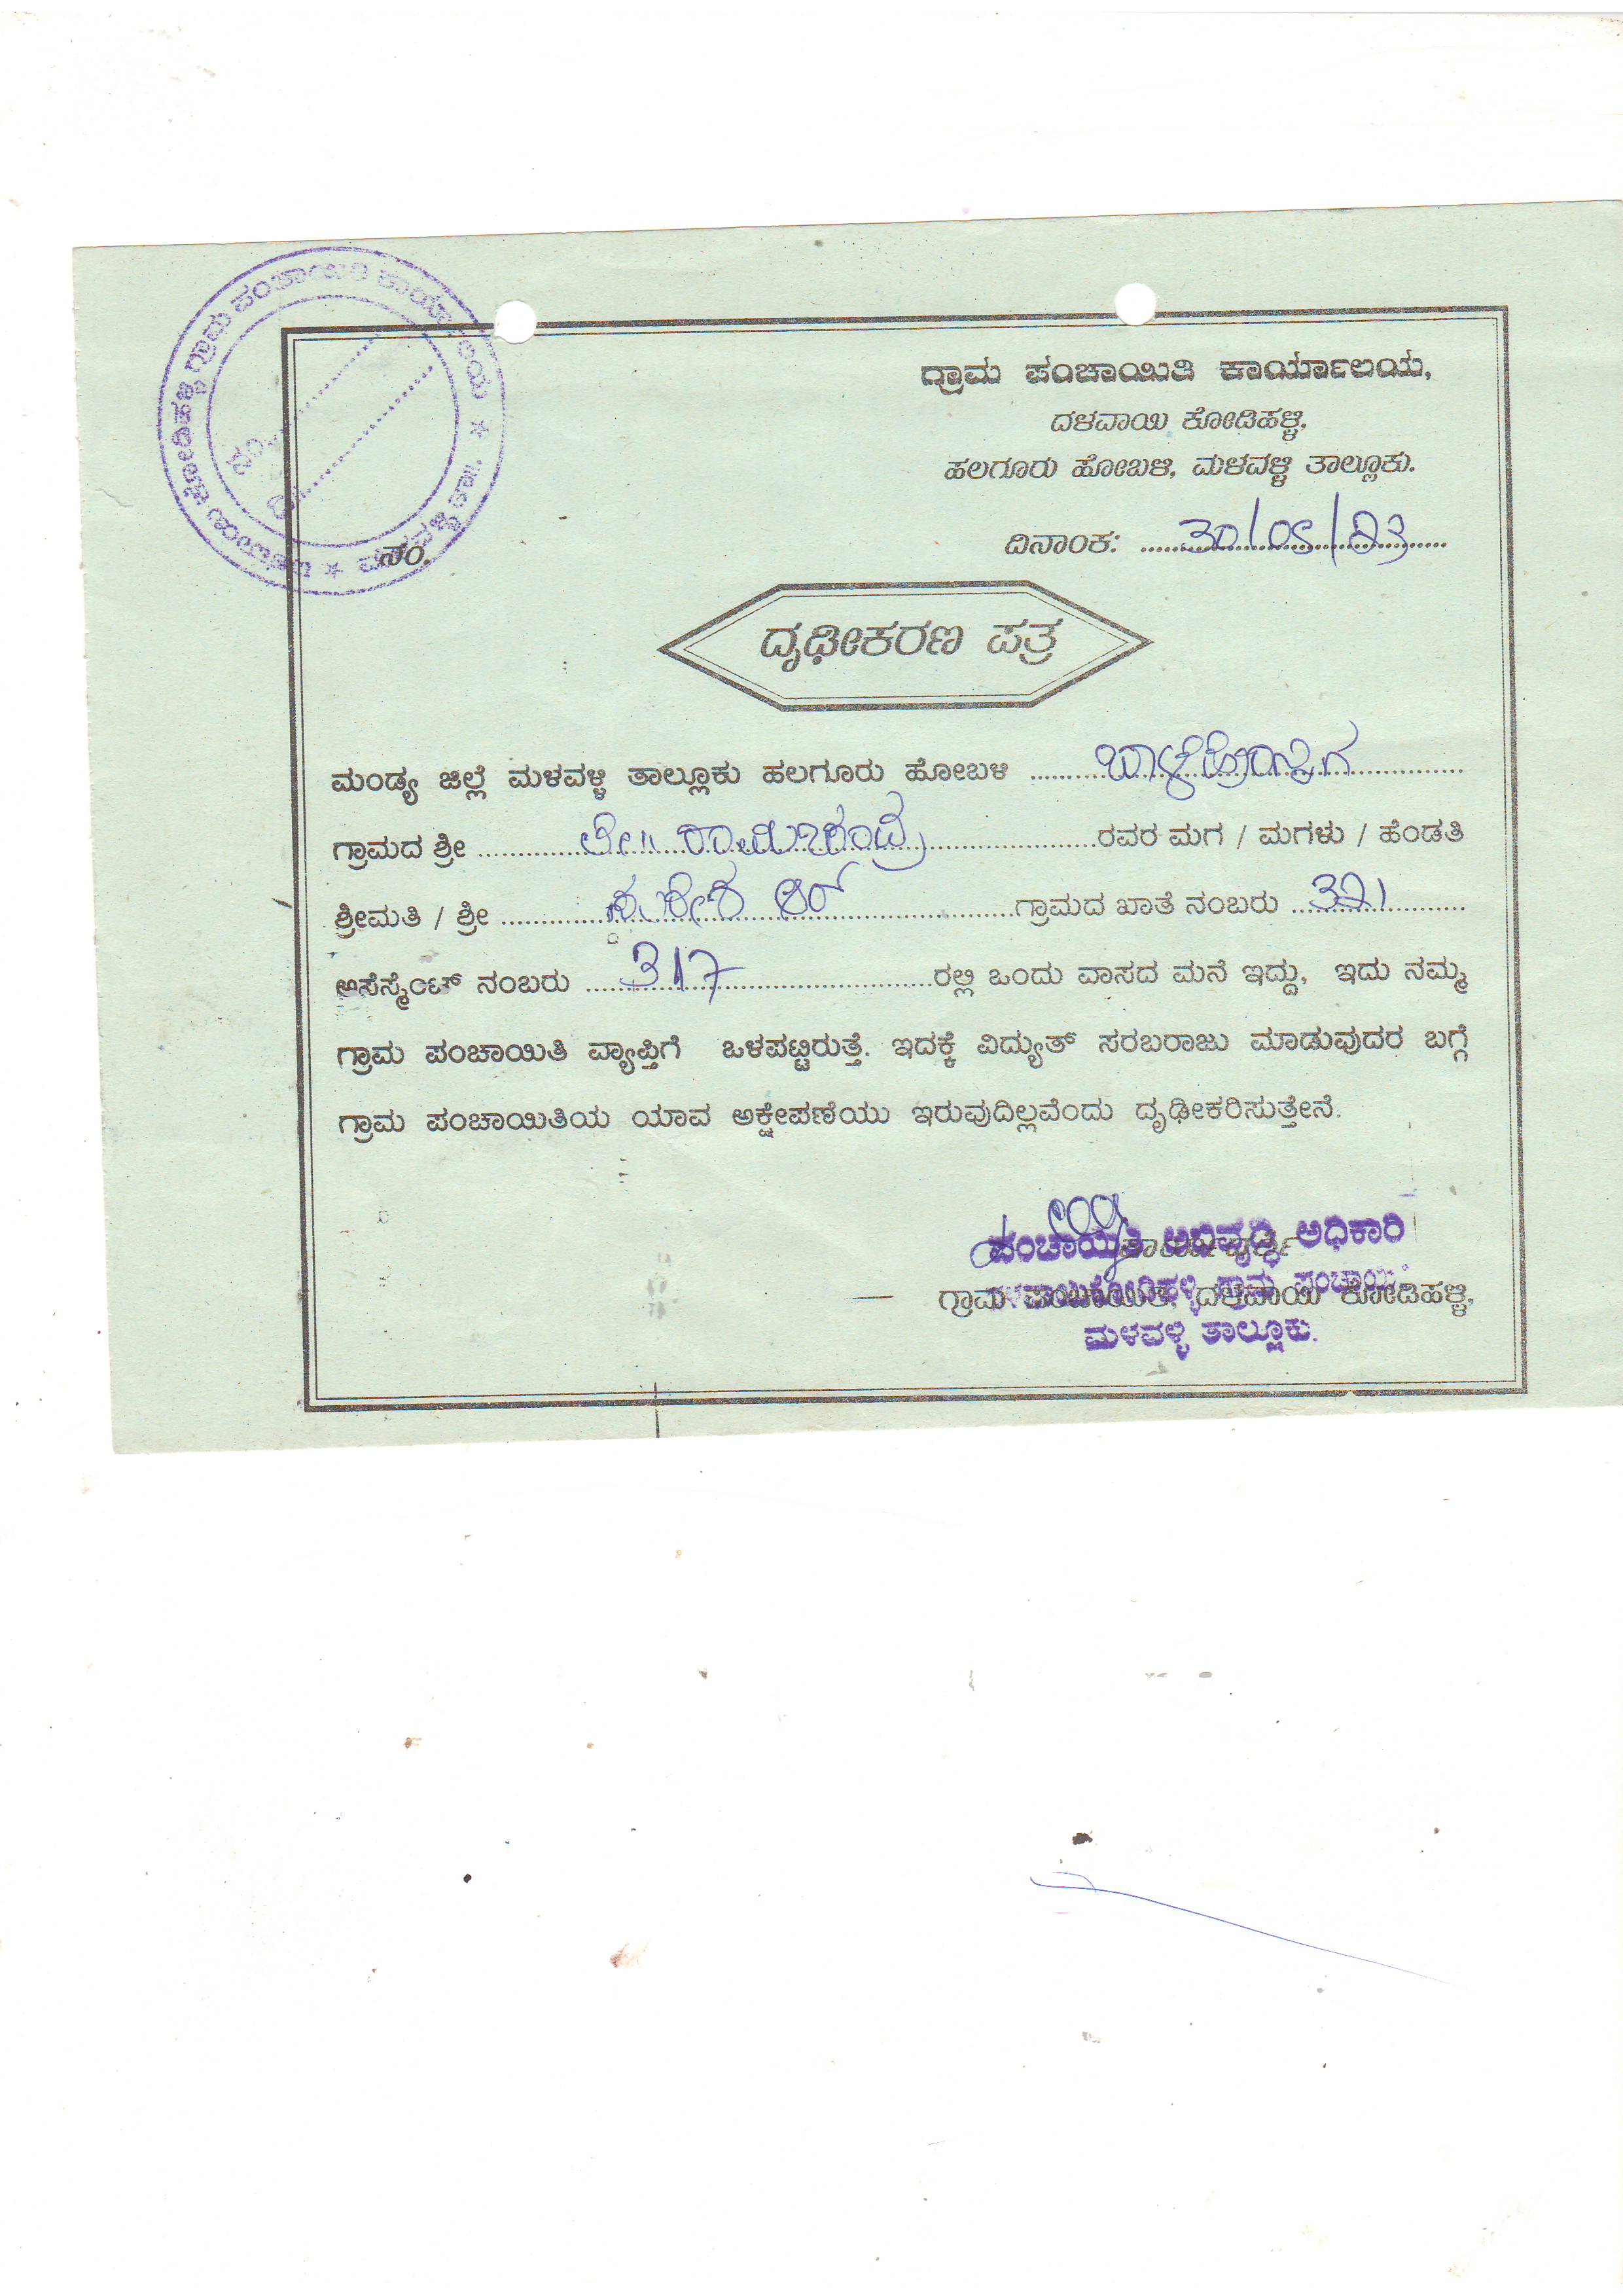 ಗ್ರಾಮ ಪಂಚಾಯಿತಿ ಕಾರ್ಯಾಲಯ,
ದಳವಾಯಿ ಕೋಡಿಹಳ್ಳಿ,
ಹಲಗೂರು ಹೋಬಳಿ, ಮಳವಳ್ಳಿ ತಾಲ್ಲೂಕು.
ದಿನಾಂಕ: 30/05/23
ನಂ.
ದೃಢೀಕರಣ ಪತ್ರ
ಮಂಡ್ಯ ಜಿಲ್ಲೆ ಮಳವಳ್ಳಿ ತಾಲ್ಲೂಕು ಹಲಗೂರು ಹೋಬಳಿ
ಗ್ರಾಮದ ಶ್ರೀ ಲೇ|| ರಾಮಚಂದ್ರ ರವರ ಮಗ / ಮಗಳು / ಹೆಂಡತಿ
ಶ್ರೀಮತಿ / ಶ್ರೀ ಗ್ರಾಮದ ಖಾತೆ ನಂಬರು 321
ಅಸೆಸ್ಮೆಂಟ್ ನಂಬರು 317 ರಲ್ಲಿ ಒಂದು ವಾಸದ ಮನೆ ಇದ್ದು, ಇದು ನಮ್ಮ
ಗ್ರಾಮ ಪಂಚಾಯಿತಿ ವ್ಯಾಪ್ತಿಗೆ ಒಳಪಟ್ಟಿರುತ್ತೆ. ಇದಕ್ಕೆ ವಿದ್ಯುತ್ ಸರಬರಾಜು ಮಾಡುವುದರ ಬಗ್ಗೆ
ಗ್ರಾಮ ಪಂಚಾಯಿತಿಯ ಯಾವ ಅಕ್ಷೇಪಣೆಯು ಇರುವುದಿಲ್ಲವೆಂದು ದೃಢೀಕರಿಸುತ್ತೇನೆ.
ಪಂಚಾಯಿತಿ ಅಭಿವೃದ್ಧಿ ಅಧಿಕಾರಿ
ಗ್ರಾಮ ಪಂಚಾಯಿತಿ, ದಳವಾಯಿ ಕೋಡಿಹಳ್ಳಿ,
ಮಳವಳ್ಳಿ ತಾಲ್ಲೂಕು.